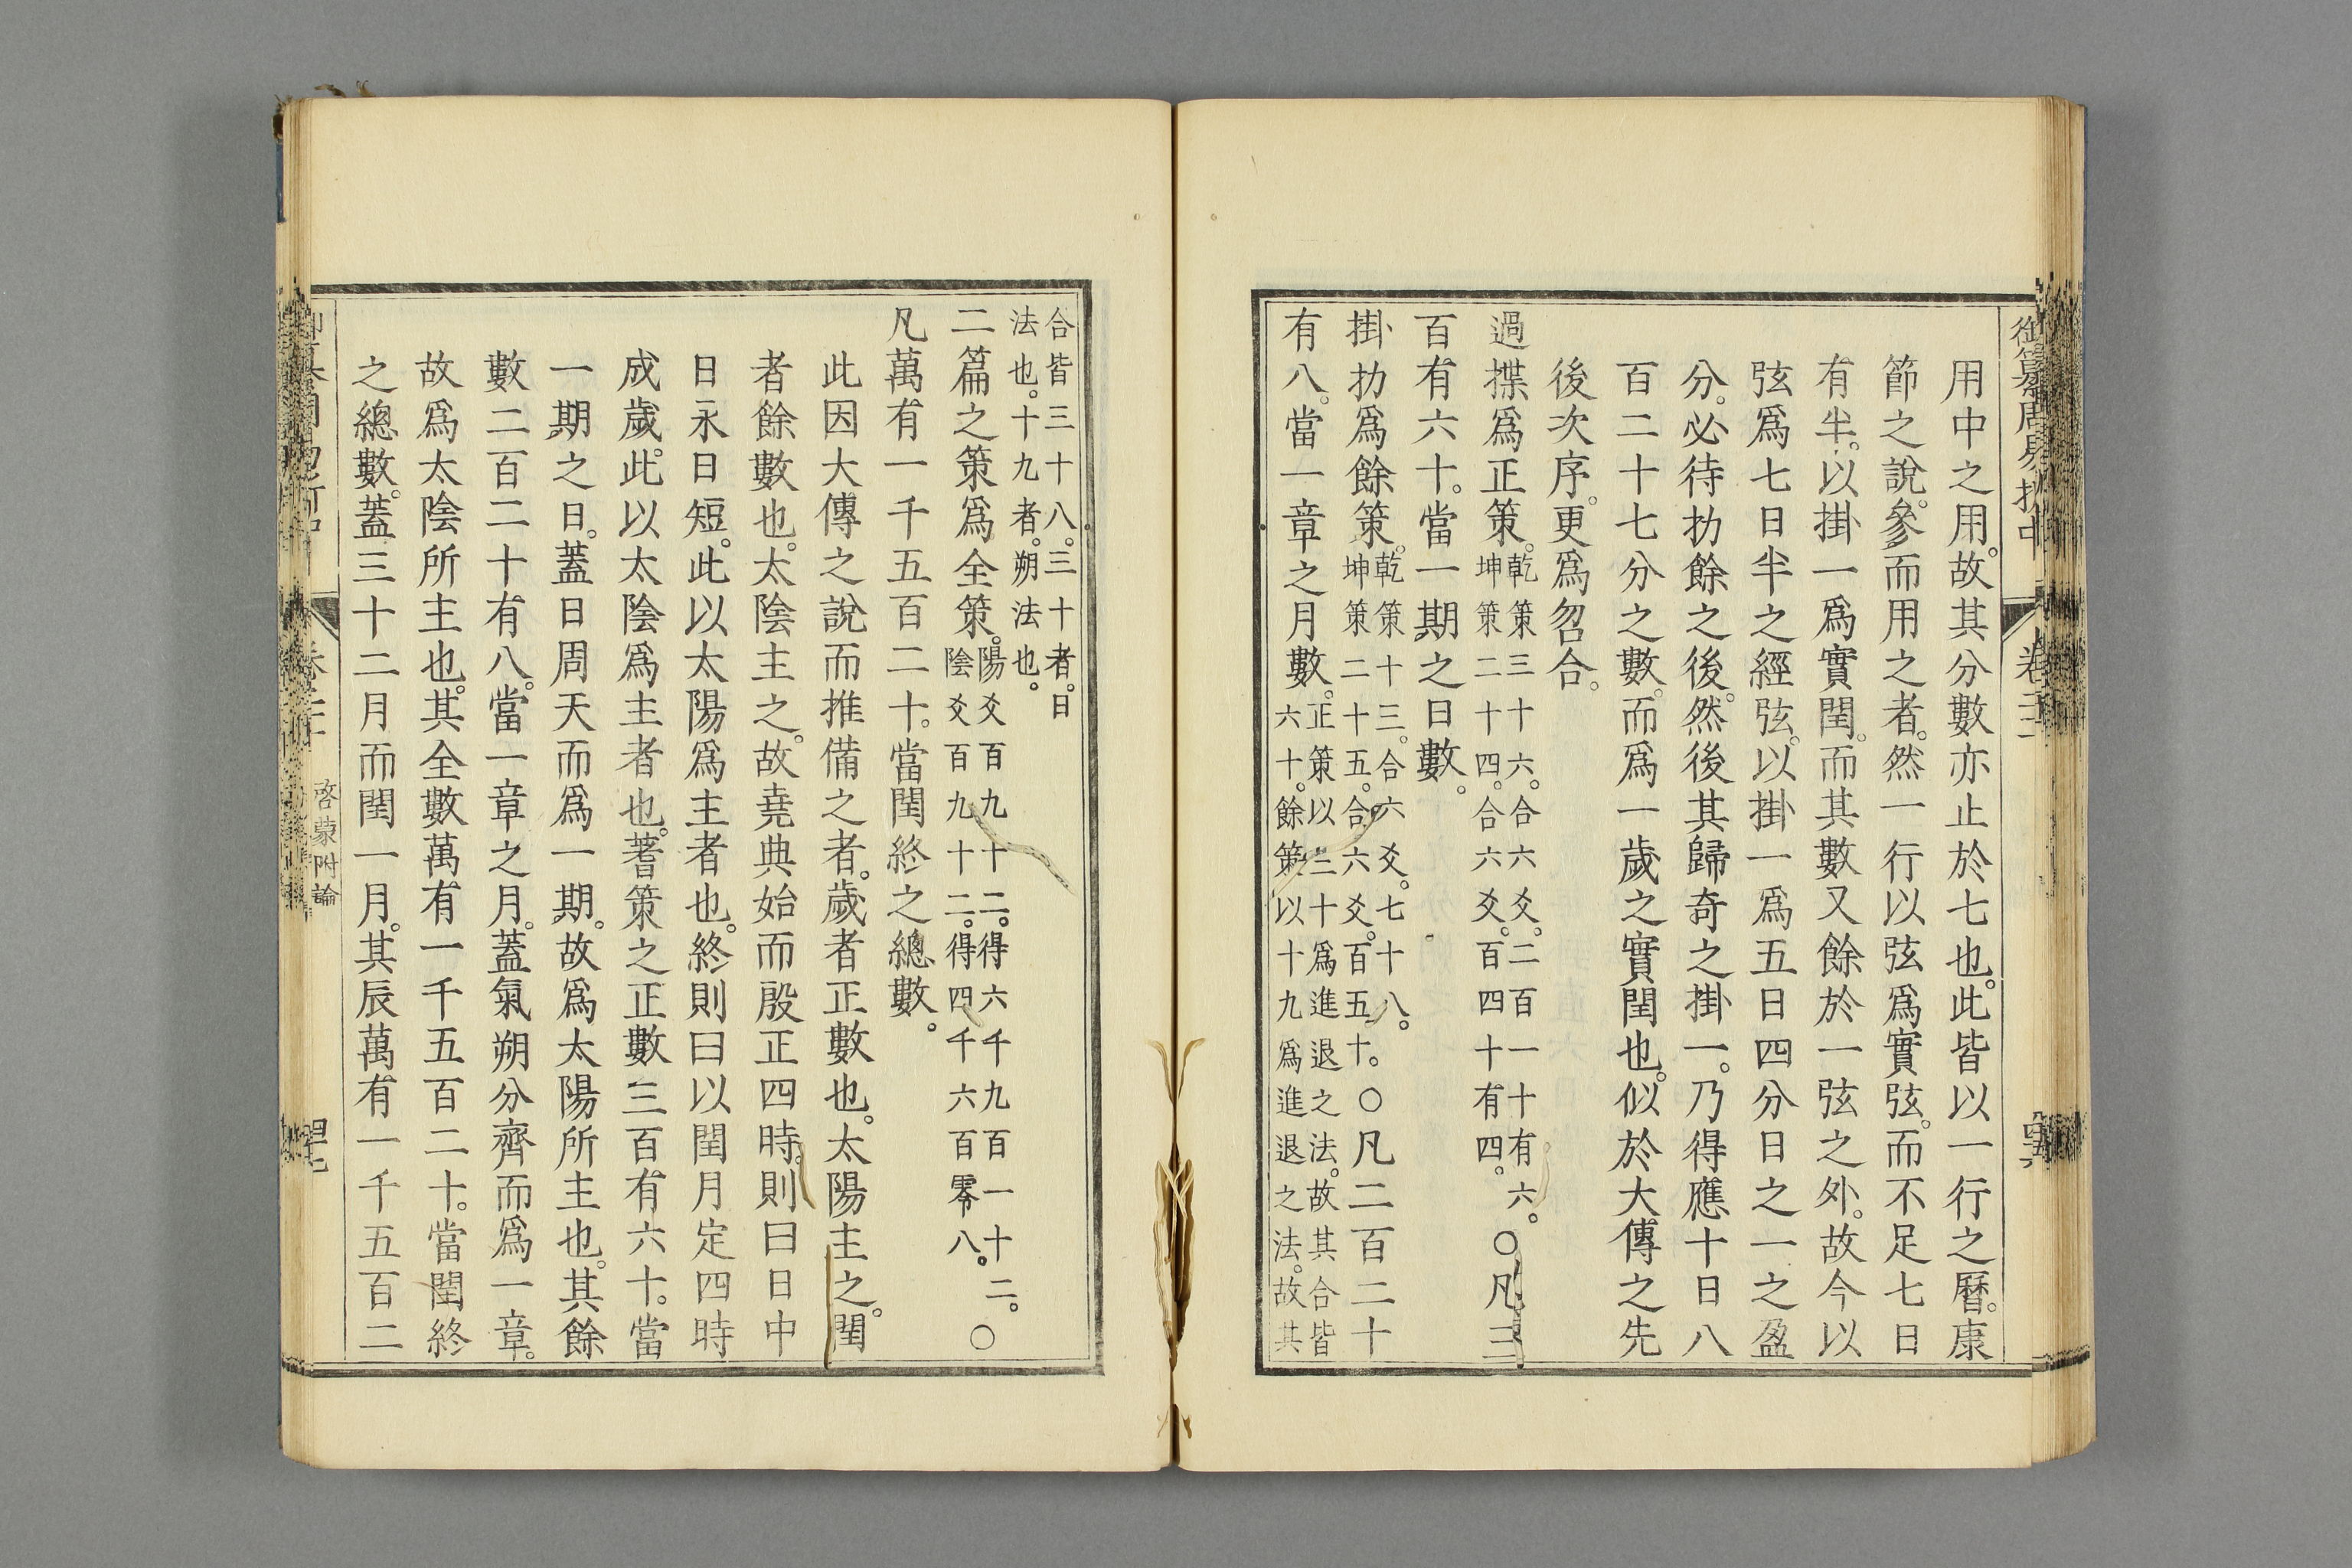 用中之用。故其分數亦止於七也。此皆以一行之曆。康
節之說。參而用之者。然一行以弦爲實弦。而不足七日
有半。以掛一爲實閏。而其數又餘於一弦之外。故今以
弦爲七日半之經弦。以掛一爲五日四分日之一之盈
分。必待扐餘之後。然後其歸奇之掛一。乃得應十日八
百二十七分之數。而爲一歲之實閏也。似於大傳之先
後次序。更爲曶合。
過揲爲正策。乾策三十六。合六爻。二百一十有六。
坤策二十四。合六爻。百四十有四。
○凡三
百有六十。當一期之日數。
掛扐爲餘策。乾策十三。合六爻。七十八。
坤策二十五。合六爻。百五十。
○凡二百二十
有八。當一章之月數。正策以三十爲進退之法。故其合皆
六十。餘策以十九爲進退之法。故其
合皆三十八。三十者。日
法也。十九者。朔法也。
二篇之策爲全策。陽爻百九十二。得六千九百一十二。
陰爻百九十二。得四千六百零八。
○
凡萬有一千五百二十。當閏終之總數。
此因大傳之說而推備之者。歲者正數也。太陽主之。閏
者餘數也。太陰主之。故堯典始而殷正四時。則曰日中
日永日短。此以太陽爲主者也。終則曰以閏月定四時
成歲。此以太陰爲主者也。蓍策之正數三百有六十。當
一期之日。蓋日周天而爲一期。故爲太陽所主也。其餘
數二百二十有八。當一章之月。蓋氣朔分齊而爲一章。
故爲太陰所主也。其全數萬有一千五百二十。當閏終
之總數。蓋三十二月而閏一月。其辰萬有一千五百二
啓蒙附論